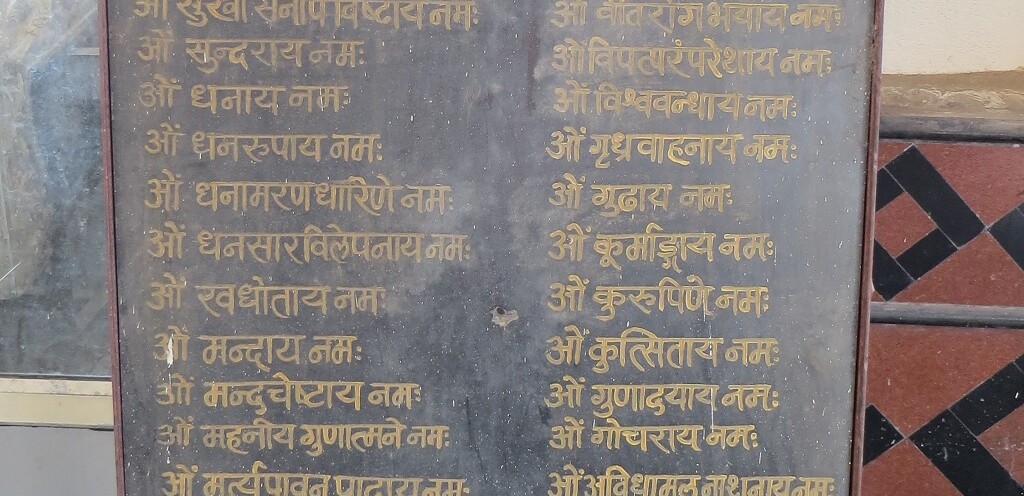 ओं सुखा सनोपविष्टाय नमः
ओं सुन्दराय नमः
ओं धनाय नमः
ओं धनरुपाय नमः
ओं धनामरणधारिणे नमः
ओं धनसारविलेपनाय नमः
ओं खधोताय नमः
ओं मन्दाय नमः
ओं मन्दचेष्टाय नमः
ओं महनीय गुणात्मने नमः
ओं मर्त्यपावन पादाय नमः
ओं वीतरागभयाय नमः
ओं विपत्परंपरेशाय नमः
ओं विश्ववन्धाय नमः
ओं गृध्रवाहनाय नमः
ओं गुढाय नमः
ओं कूर्माङ्गाय नमः
ओं कुरुपिणे नमः
ओं कुत्सिताय नमः
ओं गुणादयाय नमः
ओं गोचराय नमः
ओं अविधामूल नाशनाय नमः